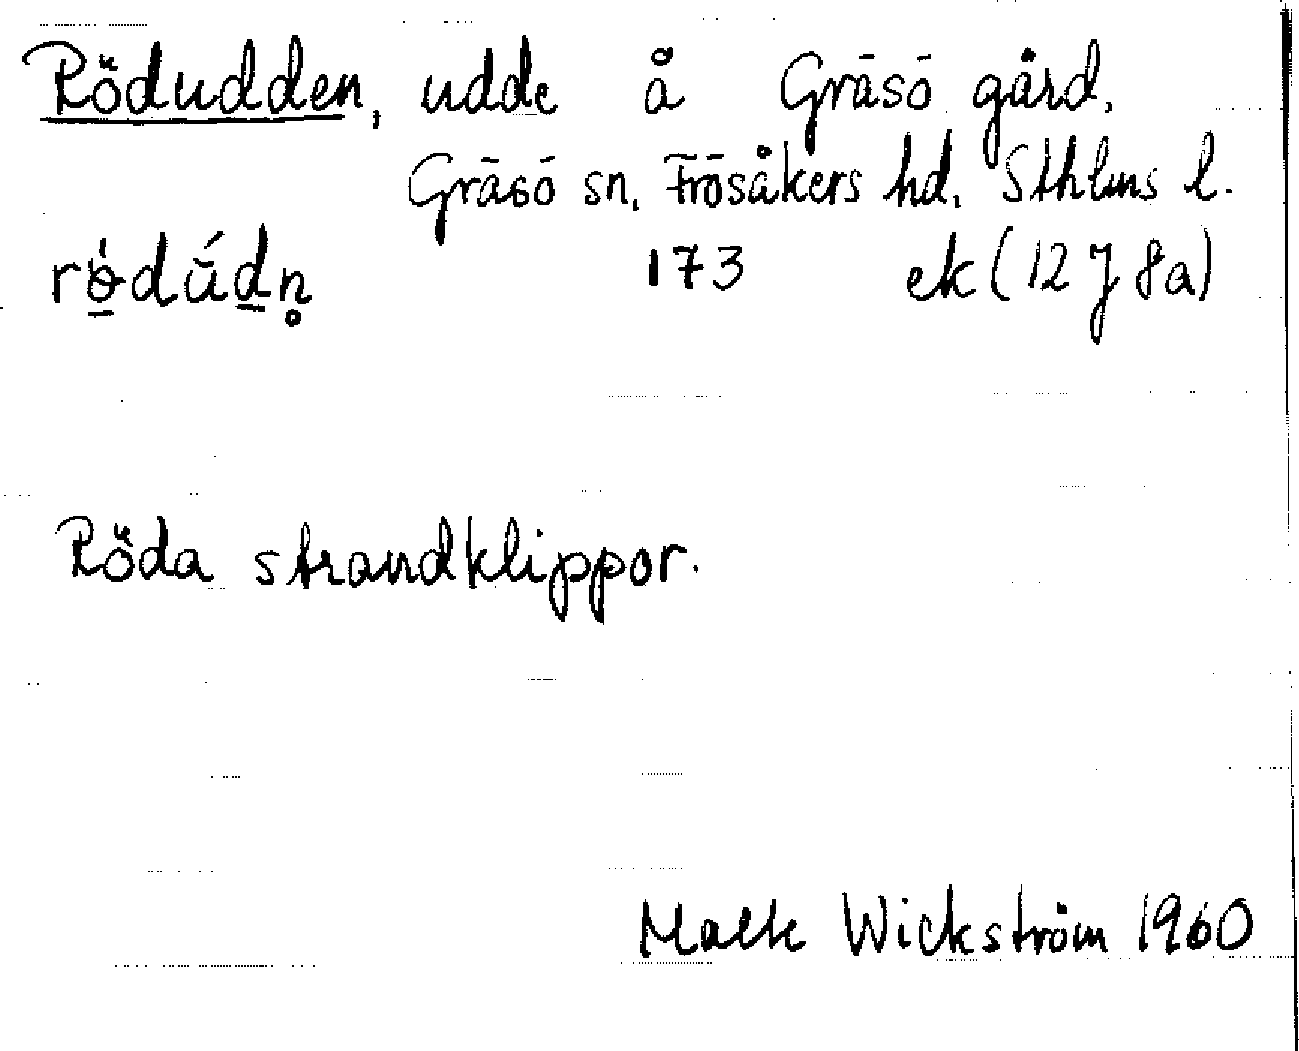 Rödudden, udde å Gräsö gård,
Gräsö sn, Frösåkers hd, Sthlms l.
173 ek (12 J 8a)
Röda strandklippor.
Wickström 1960